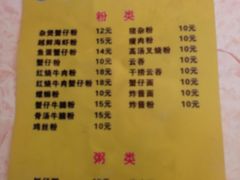 粉 类
杂煲蟹仔粉 12元
越鲜海虾粉 15元
鱼蛋蟹仔粉 14元
蟹仔粉 10元
红烧牛肉粉 18元
红烧牛肉蟹仔粉 18元
螺蛳粉 10元
蟹仔牛腩粉 15元
骨汤牛腩粉 15元
鸡丝粉 10元
猪杂粉 10元
瘦肉粉 10元
高汤叉烧粉 10元
云吞 10元
干捞云吞 10元
蟹仔面 10元
炸酱面 10元
炸酱粉 10元
粥 类